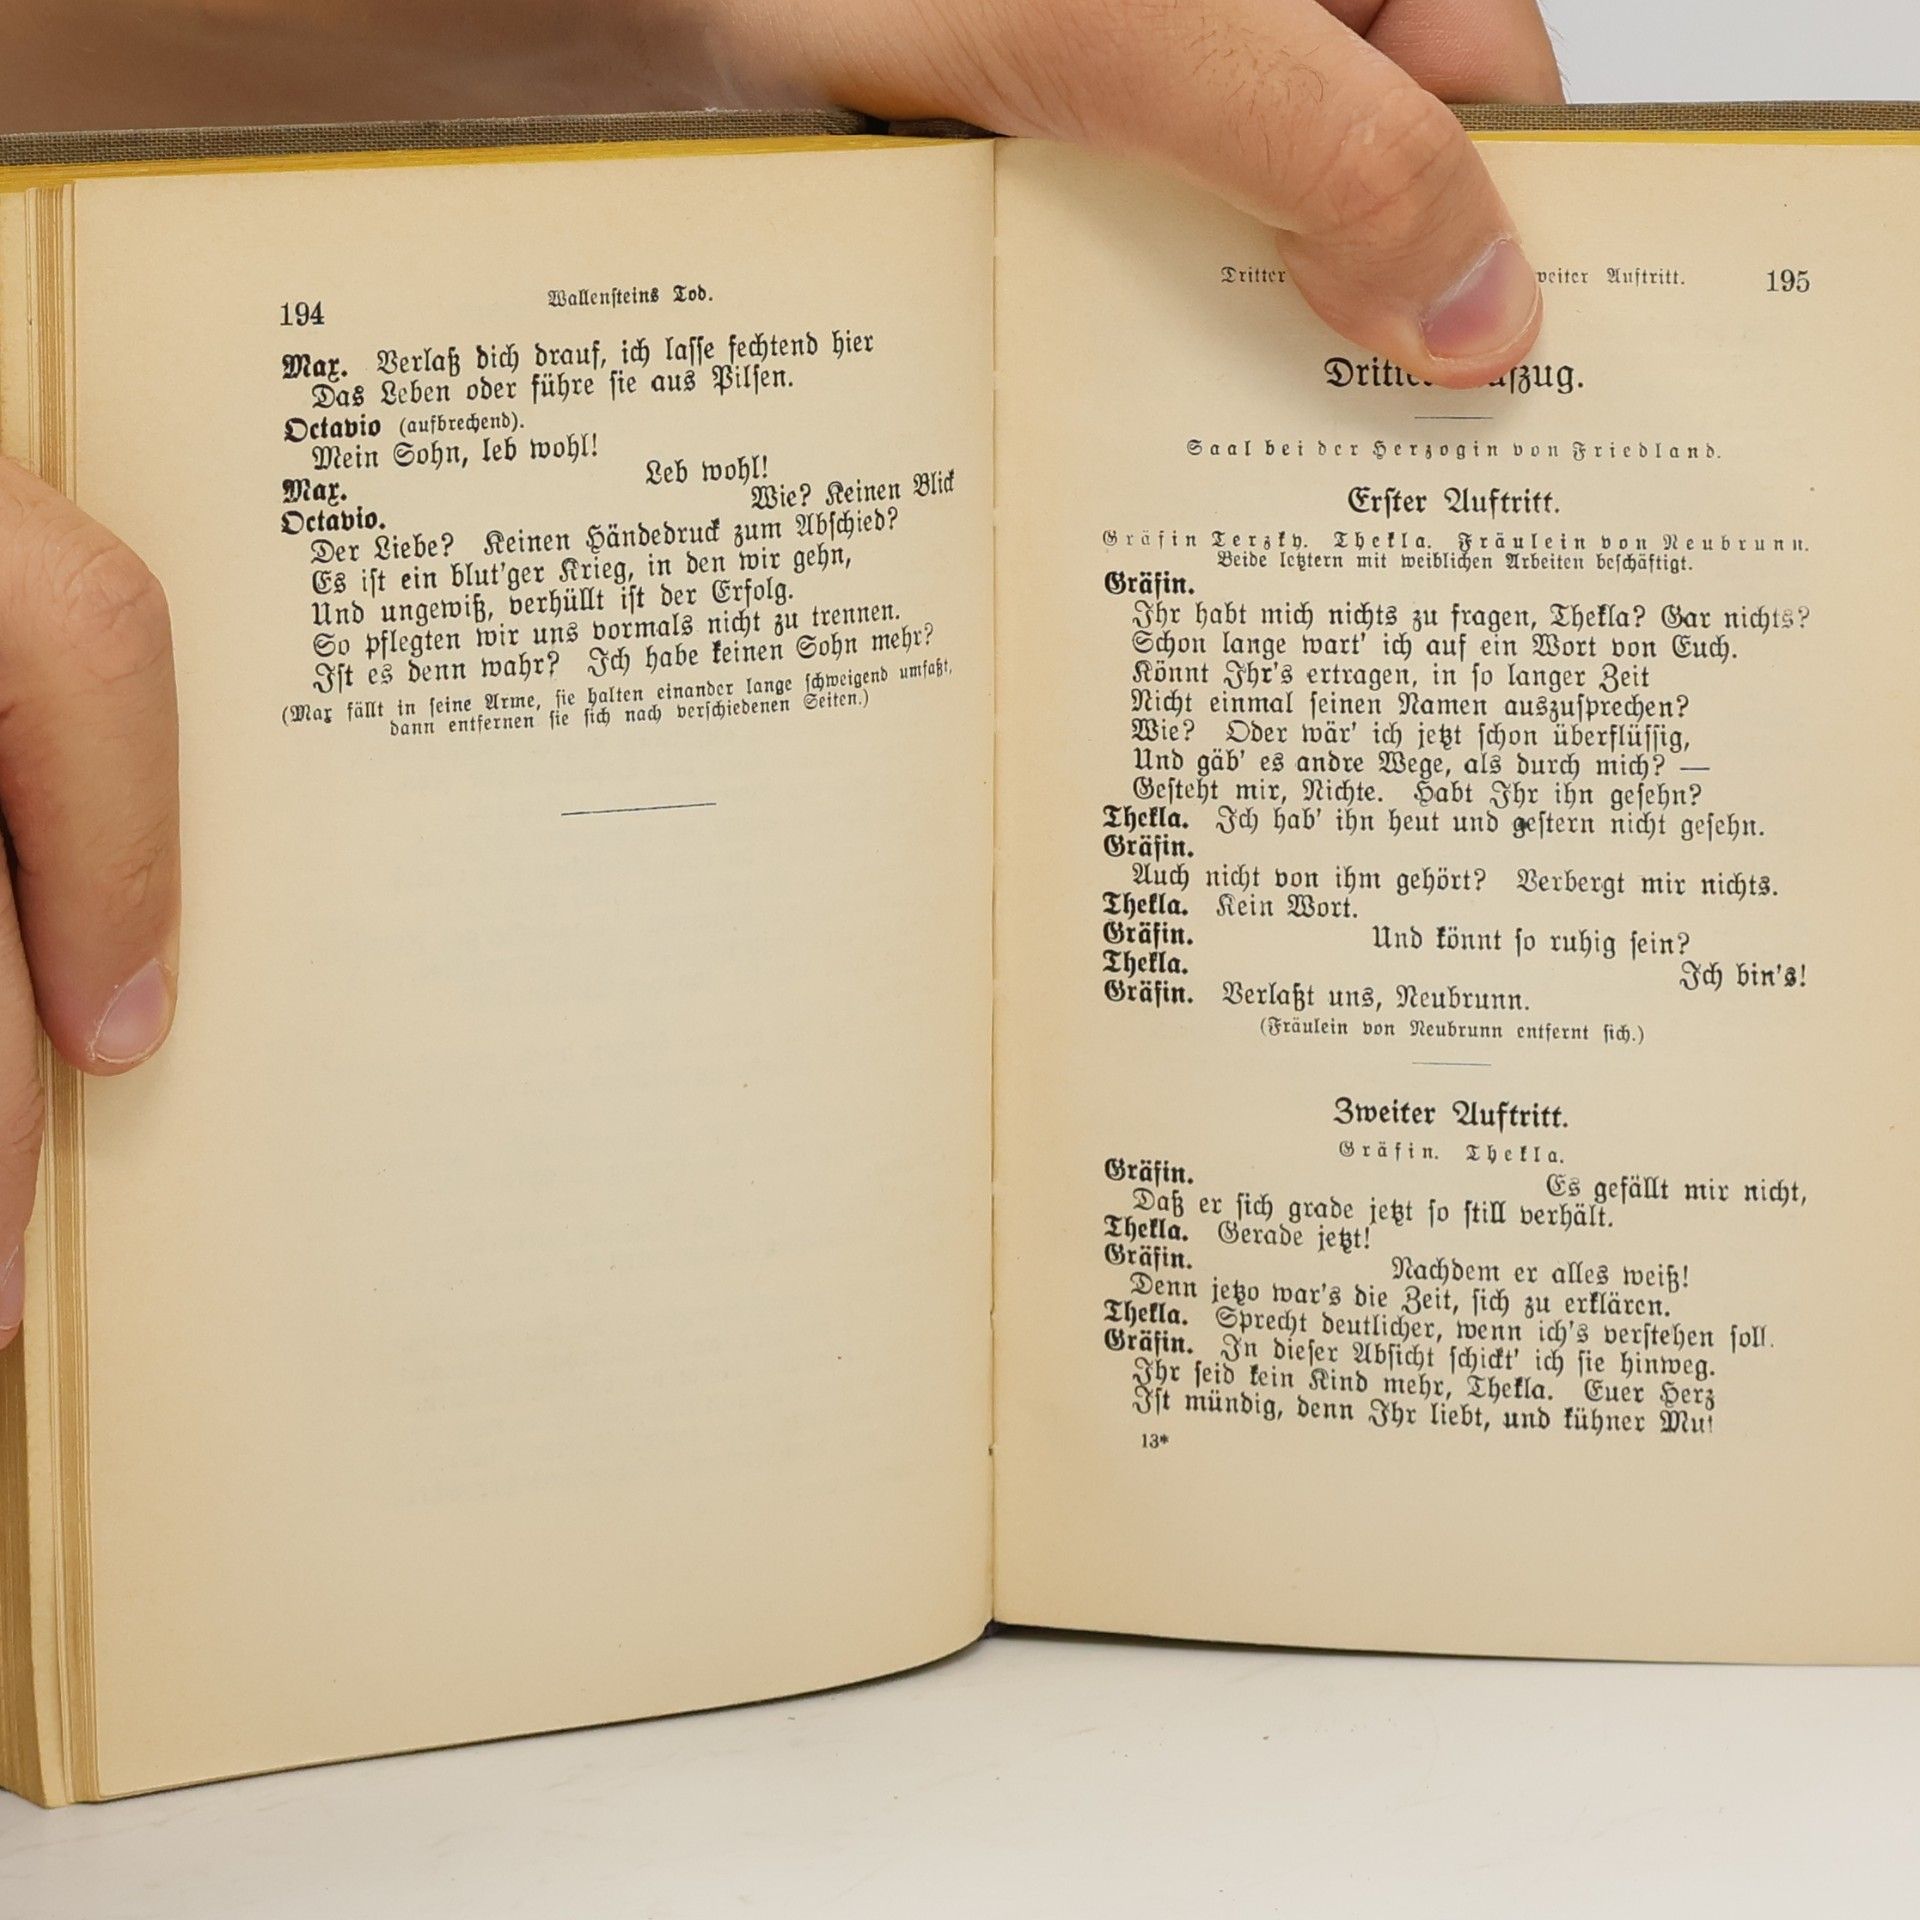 194
Wallensteins Tod.
Max. Verlaß dich drauf, ich lasse fechtend hier
Das Leben oder führe sie aus Pilsen.
Octavio (aufbrechend).
Mein Sohn, leb wohl!
Max. Leb wohl!
Octavio. Wie? Keinen Blick
Der Liebe? Keinen Händedruck zum Abschied?
Es ist ein blut'ger Krieg, in den wir gehn,
Und ungewiß, verhüllt ist der Erfolg.
So pflegten wir uns vormals nicht zu trennen.
Ist es denn wahr? Ich habe keinen Sohn mehr?
(Max fällt in seine Arme, sie halten einander lange schweigend umfaßt,
dann entfernen sie sich nach verschiedenen Seiten.)
Dritter Auftritt. 195
Saal bei der Herzogin von Friedland.
Erster Auftritt.
Gräfin Terzky. Thekla. Fräulein von Neubrunn.
Beide letztern mit weiblichen Arbeiten beschäftigt.
Gräfin.
Ihr habt mich nichts zu fragen, Thekla? Gar nichts?
Schon lange wart' ich auf ein Wort von Euch.
Könnt Ihr's ertragen, in so langer Zeit
Nicht einmal seinen Namen auszusprechen?
Wie? Oder wär' ich jetzt schon überflüssig,
Und gäb' es andre Wege, als durch mich? —
Gesteht mir, Nichte. Habt Ihr ihn gesehn?
Thekla. Ich hab' ihn heut und gestern nicht gesehn.
Gräfin.
Auch nicht von ihm gehört? Verbergt mir nichts.
Thekla. Kein Wort.
Gräfin. Und könnt so ruhig sein?
Thekla. Ich bin's!
Gräfin. Verlaßt uns, Neubrunn.
(Fräulein von Neubrunn entfernt sich.)
Zweiter Auftritt.
Gräfin. Thekla.
Gräfin. Es gefällt mir nicht,
Daß er sich grade jetzt so still verhält.
Thekla. Gerade jetzt!
Gräfin. Nachdem er alles weiß!
Denn jetzo war's die Zeit, sich zu erklären.
Thekla. Sprecht deutlicher, wenn ich's verstehen soll.
Gräfin. In dieser Absicht schickt' ich sie hinweg.
Ihr seid kein Kind mehr, Thekla. Euer Herz
Ist mündig, denn Ihr liebt, und kühner Mut
13*